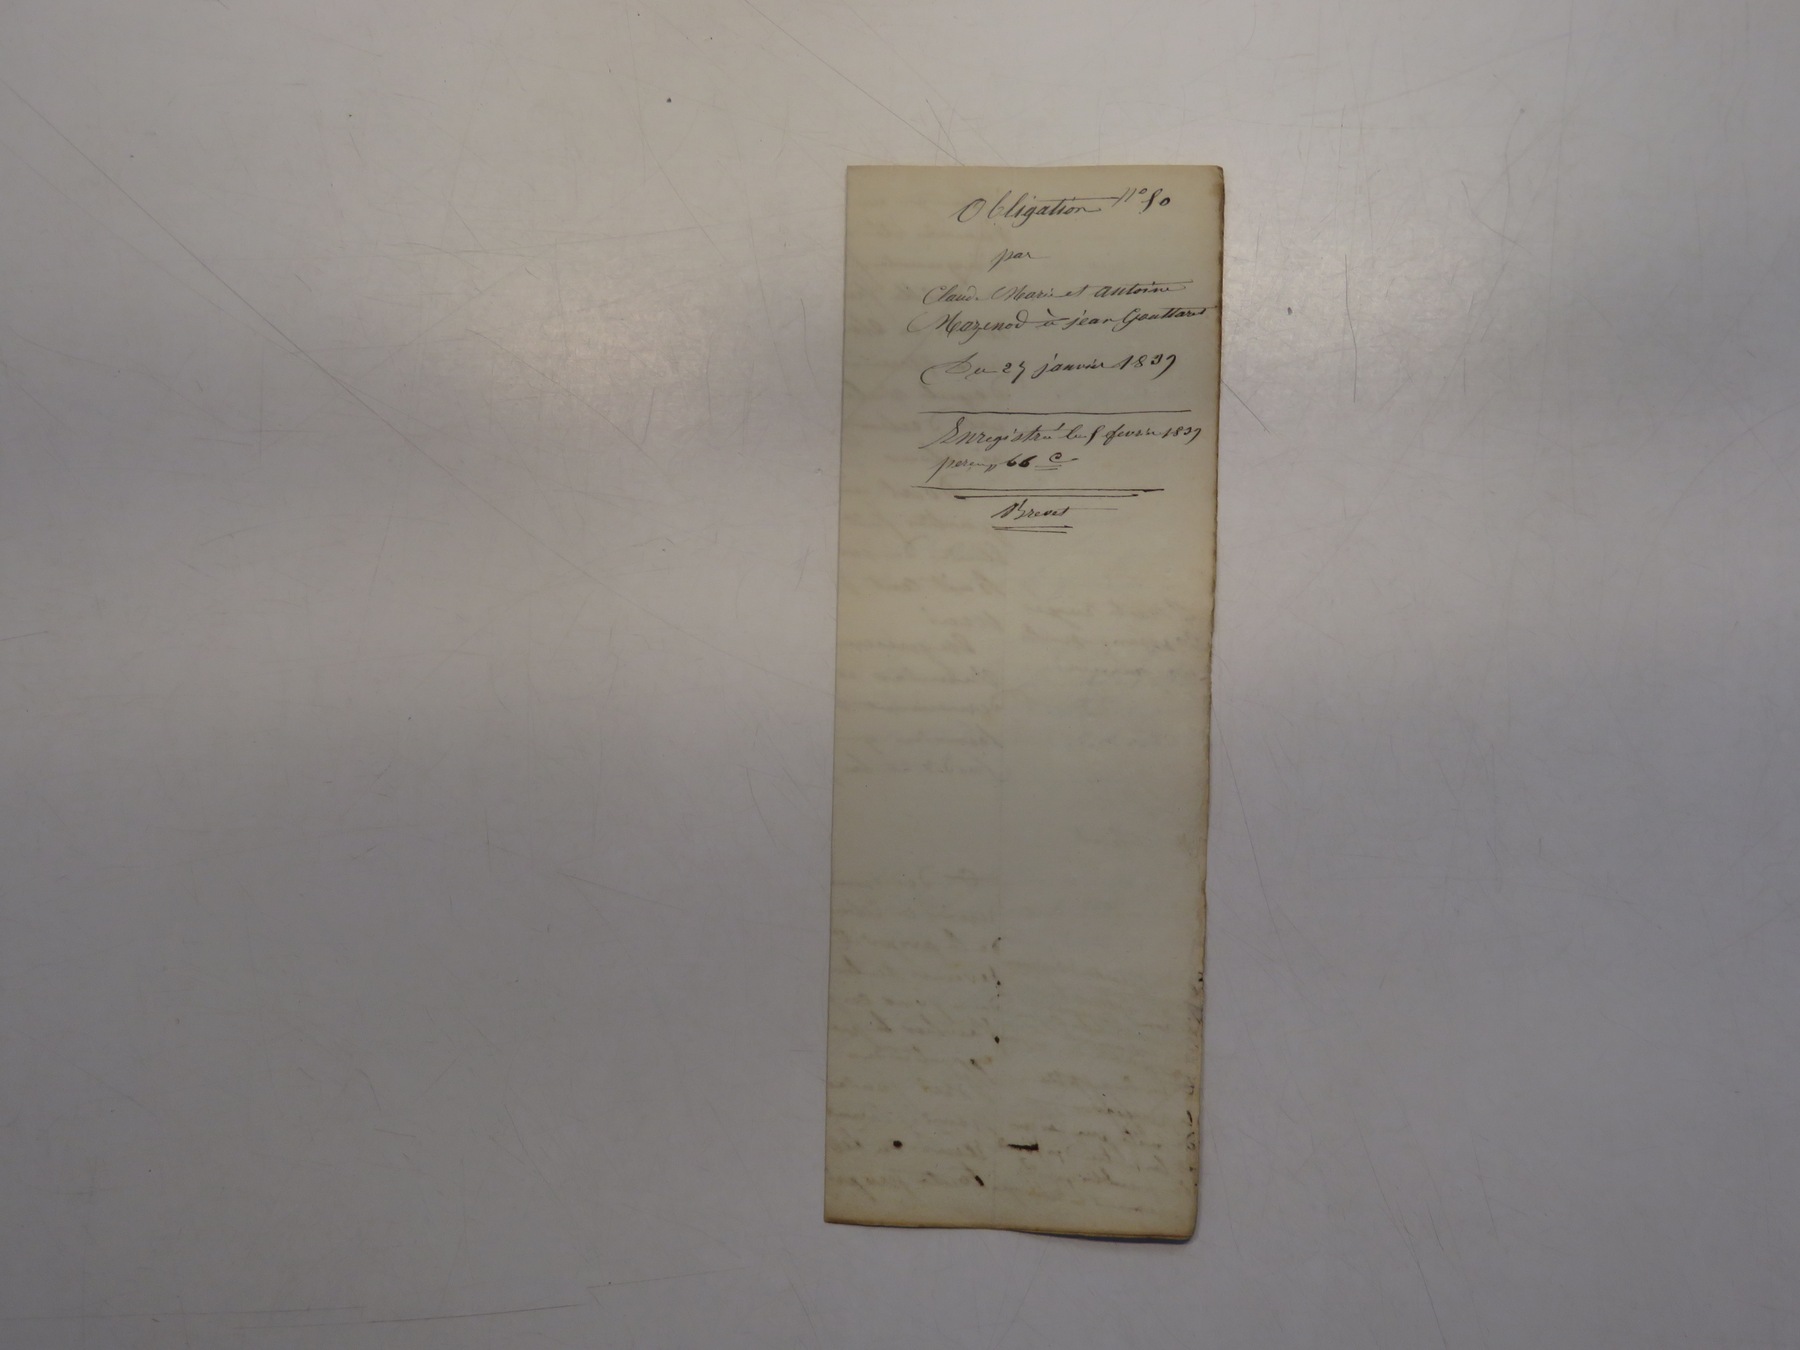 Obligation N° 50
par
Claude Marie et antoine
Mazenod à jean Gouttard
Du 27 janvier 1839
Enregistré le 5 fevrier 1839
66 c
Brevet